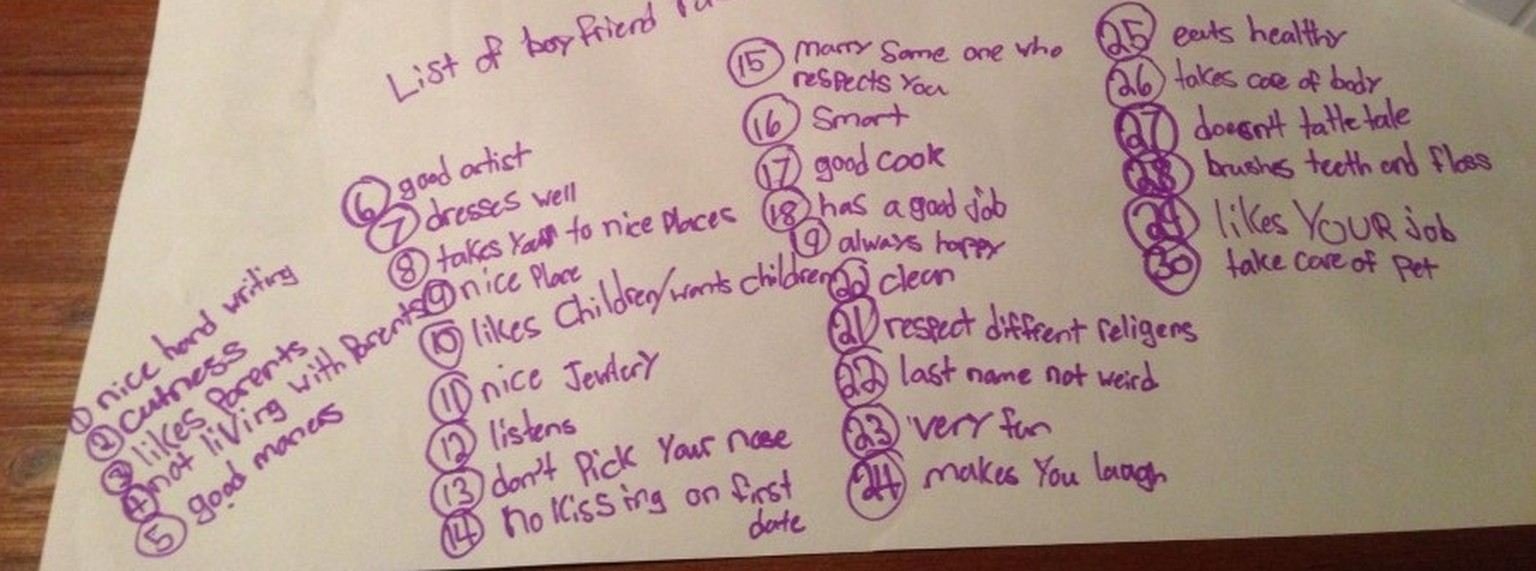 List of boyfriend
① nice hand writing
② cutness
③ likes Parents
④ not living with Parents
⑤ good maners
⑥ good artist
⑦ dresses well
⑧ takes You to nice Places
⑨ nice Place
⑩ likes Children/wants children
⑪ nice Jewlery
⑫ listens
⑬ don't Pick Your nose
⑭ no kissing on first
date
⑮ marry Some one who
respects You
⑯ Smart
⑰ good cook
⑱ has a good job
⑲ always happy
⑳ clean
㉑ respect diffrent religens
㉒ last name not weird
㉓ very fun
㉔ makes You laugh
㉕ eats healthy
㉖ takes care of body
㉗ doesn't tattle tale
㉘ brushes teeth and floss
㉙ likes YOUR job
㉚ take care of Pet